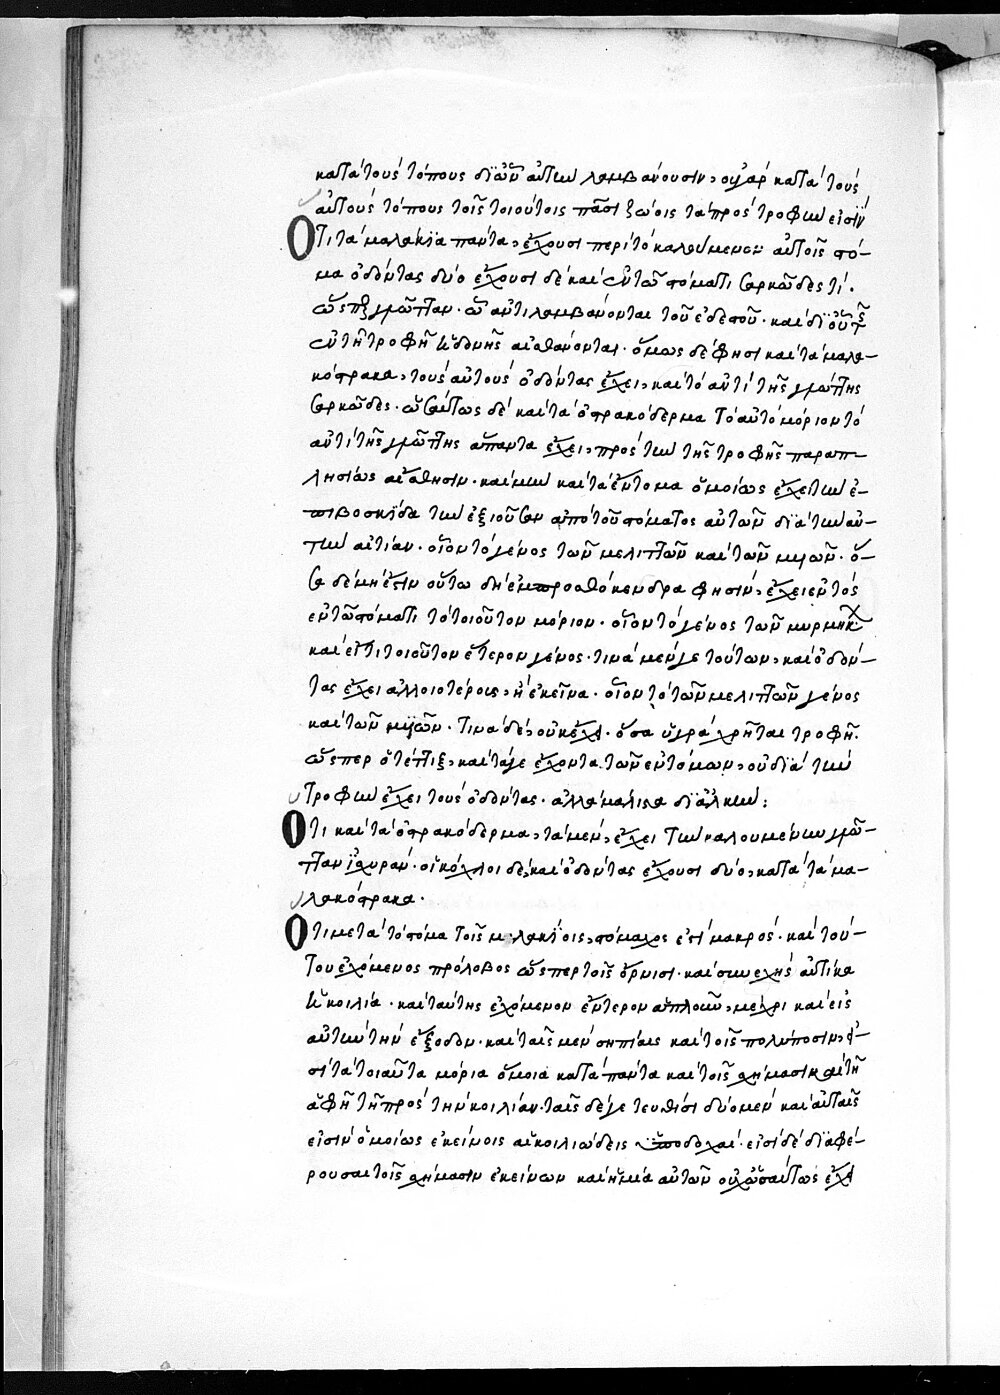 κατὰ τοὺς τόπους δι' ὧν αὐτὴν λαμβάνουσιν, οὐ γὰρ κατὰ τοὺς
αὐτοὺς τόπους τοῖς τοιούτοις πᾶσι ζώοις τὰ πρὸς τροφήν εἰσιν
Ὅτι τὰ μαλάκια πάντα, ἔχουσι περὶ τὸ καλούμενον αὐτοῖς στό-
μα ὀδόντας δύο ἔχουσι δὲ καὶ ἐν τῷ στόματι σαρκῶδές τι.
ὥσπερ γλῶτταν. ᾧ ἀντιλαμβάνονται τοῦ ἐδεστοῦ. καὶ δι' οὗ τῆς
ἐν τῇ τροφῇ ἡδονῆς αἰσθάνονται. ὅμως δέ φησι καὶ τὰ μαλα-
κόστρακα, τοὺς αὐτοὺς ὀδόντας ἔχει, καὶ τὸ ἀντὶ τῆς γλώττης
σαρκῶδες. ὡσαύτως δὲ καὶ τὰ ὀστρακόδερμα τὸ αὐτὸ μόριον τὸ
ἀντὶ τῆς γλώττης ἅπαντα ἔχει, πρὸς τὴν τῆς τροφῆς παραπ-
λησίως αἴσθησιν. καὶ μὴν καὶ τὰ ἔντομα ὁμοίως ἔχει τὴν ἐ-
πιβοσκίδα τὴν ἐξιοῦσαν ἀπὸ τοῦ στόματος αὐτῶν διὰ τὴν αὐ-
τὴν αἰτίαν. οἷον τὸ γένος τῶν μελιττῶν καὶ τῶν μυιῶν. ὅ-
σα δὲ μή ἐστιν οὕτω δὴ ἐμπροσθόκεντρα φησίν, ἔχει ἐντὸς
ἐν τῷ στόματι τὸ τοιοῦτον μόριον. οἷον τὸ γένος τῶν μυρμήκ
καὶ εἴ τι τοιοῦτον ἕτερον γένος. τινὰ μέν γε τούτων, καὶ ὀδόν-
τας ἔχει ἀλλοιοτέρους, ἢ ἐκεῖνα. οἷον τὸ τῶν μελιττῶν γένος
καὶ τῶν μυιῶν. τινὰ δὲ, οὐκ ἔχει. ὅσα ὑγρᾷ χρῆται τροφῇ.
ὥσπερ ὁ τέττιξ, καὶ τά γε ἔχοντα τῶν ἐντόμων, οὐ διὰ τὴν
τροφὴν ἔχει τοὺς ὀδόντας. ἀλλὰ μάλιστα δι' ἀλκήν:
Ὅτι καὶ τὰ ὀστρακόδερμα, τὰ μὲν, ἔχει τὴν καλουμένην γλῶ-
τταν ἰσχυράν. οἱ κόχλοι δὲ, καὶ ὀδόντας ἔχουσι δύο, κατὰ τὰ μα-
λακόστρακα.
Ὅτι μετὰ τὸ στόμα τοῖς μαλακίοις, στόμαχος ἐστὶ μακρός. καὶ τού-
του ἐχόμενος πρόλοβος ὥσπερ τοῖς ὄρνισι. καὶ συνεχὴς αὐτίκα
ἡ κοιλία. καὶ ταύτης ἐχόμενον ἔντερον ἁπλοῦν, μέχρι καὶ εἰς
αὐτὴν τὴν ἔξοδον. καὶ ταῖς μὲν σηπίαις καὶ τοῖς πολύποσιν, ἐ-
στὶ τὰ τοιαῦτα μόρια ὅμοια κατὰ πάντα καὶ τοῖς σχήμασι καὶ τῇ
ἁφῇ τῇ πρὸς τὴν κοιλίαν. ταῖς δέ γε τευθίσι δύο μὲν καὶ αὐταῖς
εἰσὶν ὁμοίως ἐκείνοις αἱ κοιλιώδεις ὑποδοχαί. εἰσὶ δὲ διαφέ-
ρουσαι τοῖς σχήμασιν ἐκείνων καὶ ἡ μία αὐτῶν οὐχ ὡσαύτως ἔχει